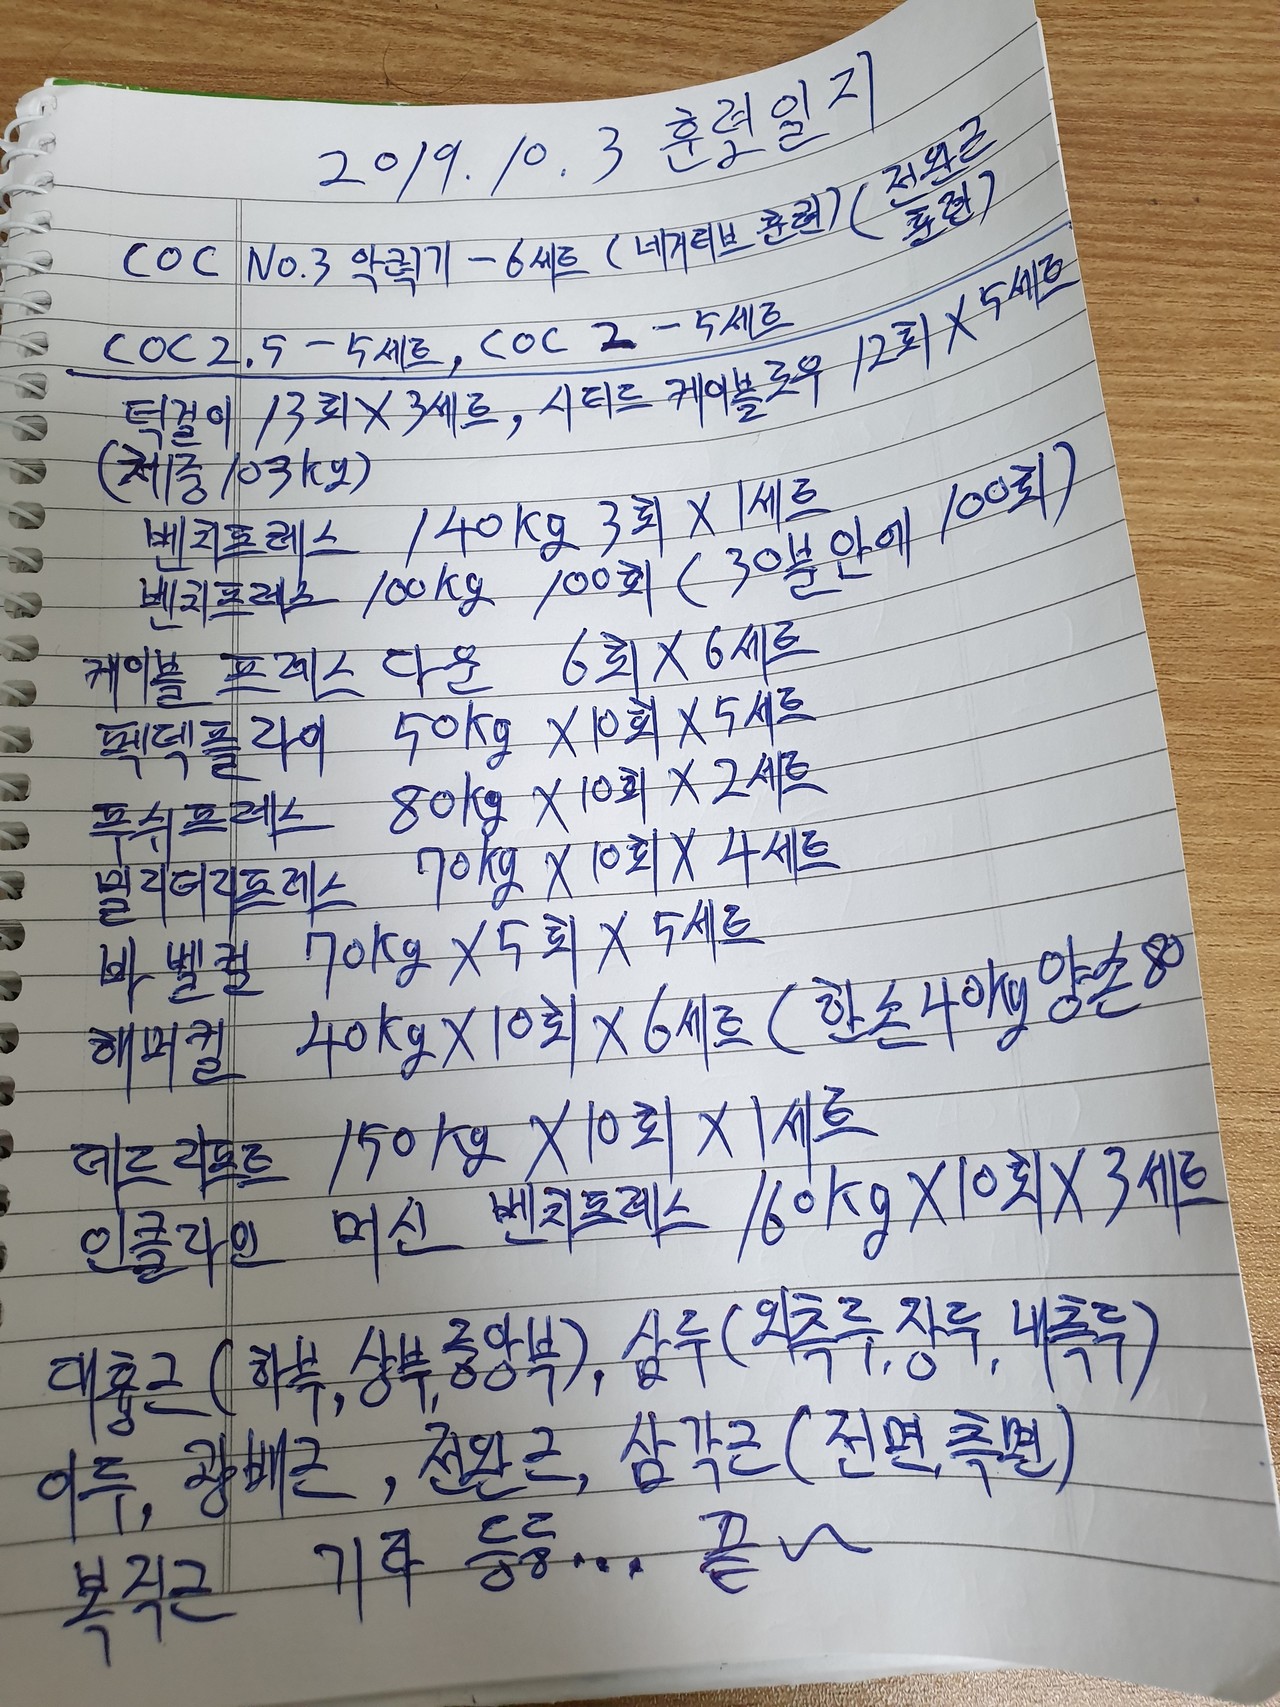 2019. 10. 3 훈련일지
COC No.3 악력기 - 6세트 (네거티브 훈련) (전완근 훈련)
COC 2.5 - 5세트, COC 2 - 5세트
턱걸이 13회 X 3세트, 시티드 케이블로우 12회 X 5세트
(체중 103kg)
벤치프레스 140kg 3회 X 1세트
벤치프레스 100kg 100회 (30분안에 100회)
케이블 프레스 다운 6회 X 6세트
펙덱플라이 50kg X 10회 X 5세트
푸쉬프레스 80kg X 10회 X 2세트
밀리터리프레스 70kg X 10회 X 4세트
바벨컬 70kg X 5회 X 5세트
해머컬 40kg X 10회 X 6세트 (한손 40kg 양손 80
데드리프트 150kg X 10회 X 1세트
인클라인 머신 벤치프레스 160kg X 10회 X 3세트
대흉근 (하부, 상부, 중앙부), 삼두 (외측두, 장두, 내측두)
이두, 광배근, 전완근, 삼각근 (전면, 측면)
복직근 기타 등등... 끝~